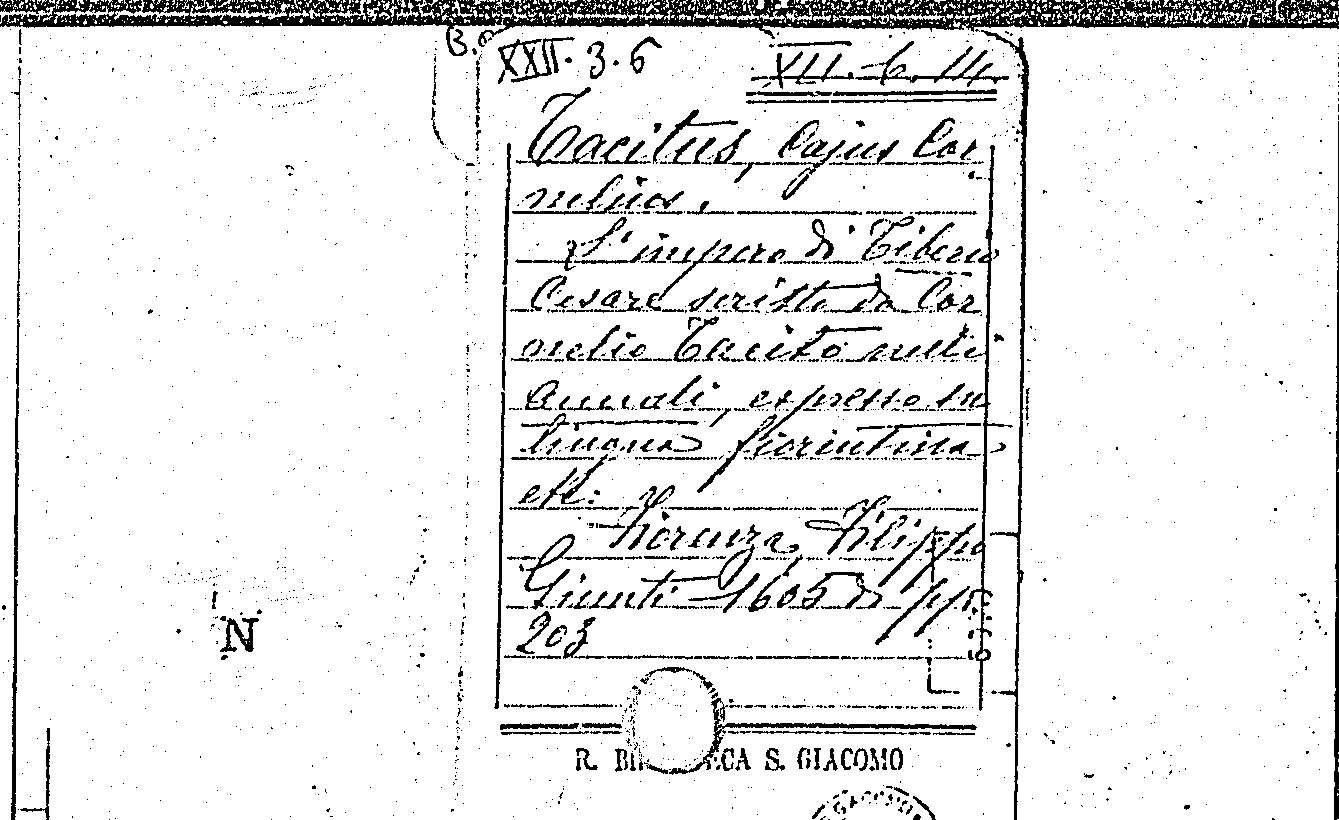 XXII. 3. 6
XII. 6. 14.
Tacitus, Cajus Cor
nelius.
L'impero di Tiberio
Cesare scritto da Cor
nelio Tacito nelli
Annali, espresso in
lingua fiorentina
etc:
Fiorenza, Filippo
Giunti 1605 di pp.
203
N
R. S. GIACOMO